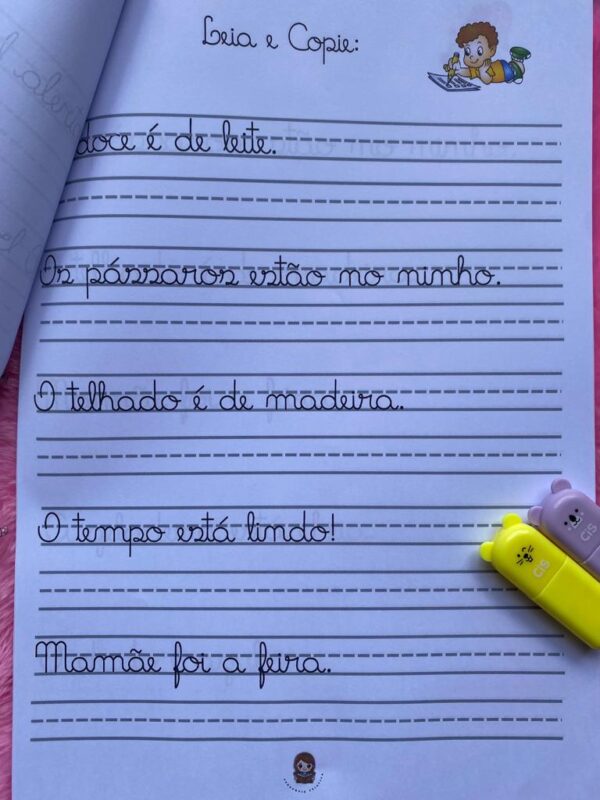 Leia e Copie:
doce é de leite.
Os pássaros estão no ninho.
O telhado é de madeira.
O tempo está lindo!
Mamãe foi a feira.
CiS
CiS